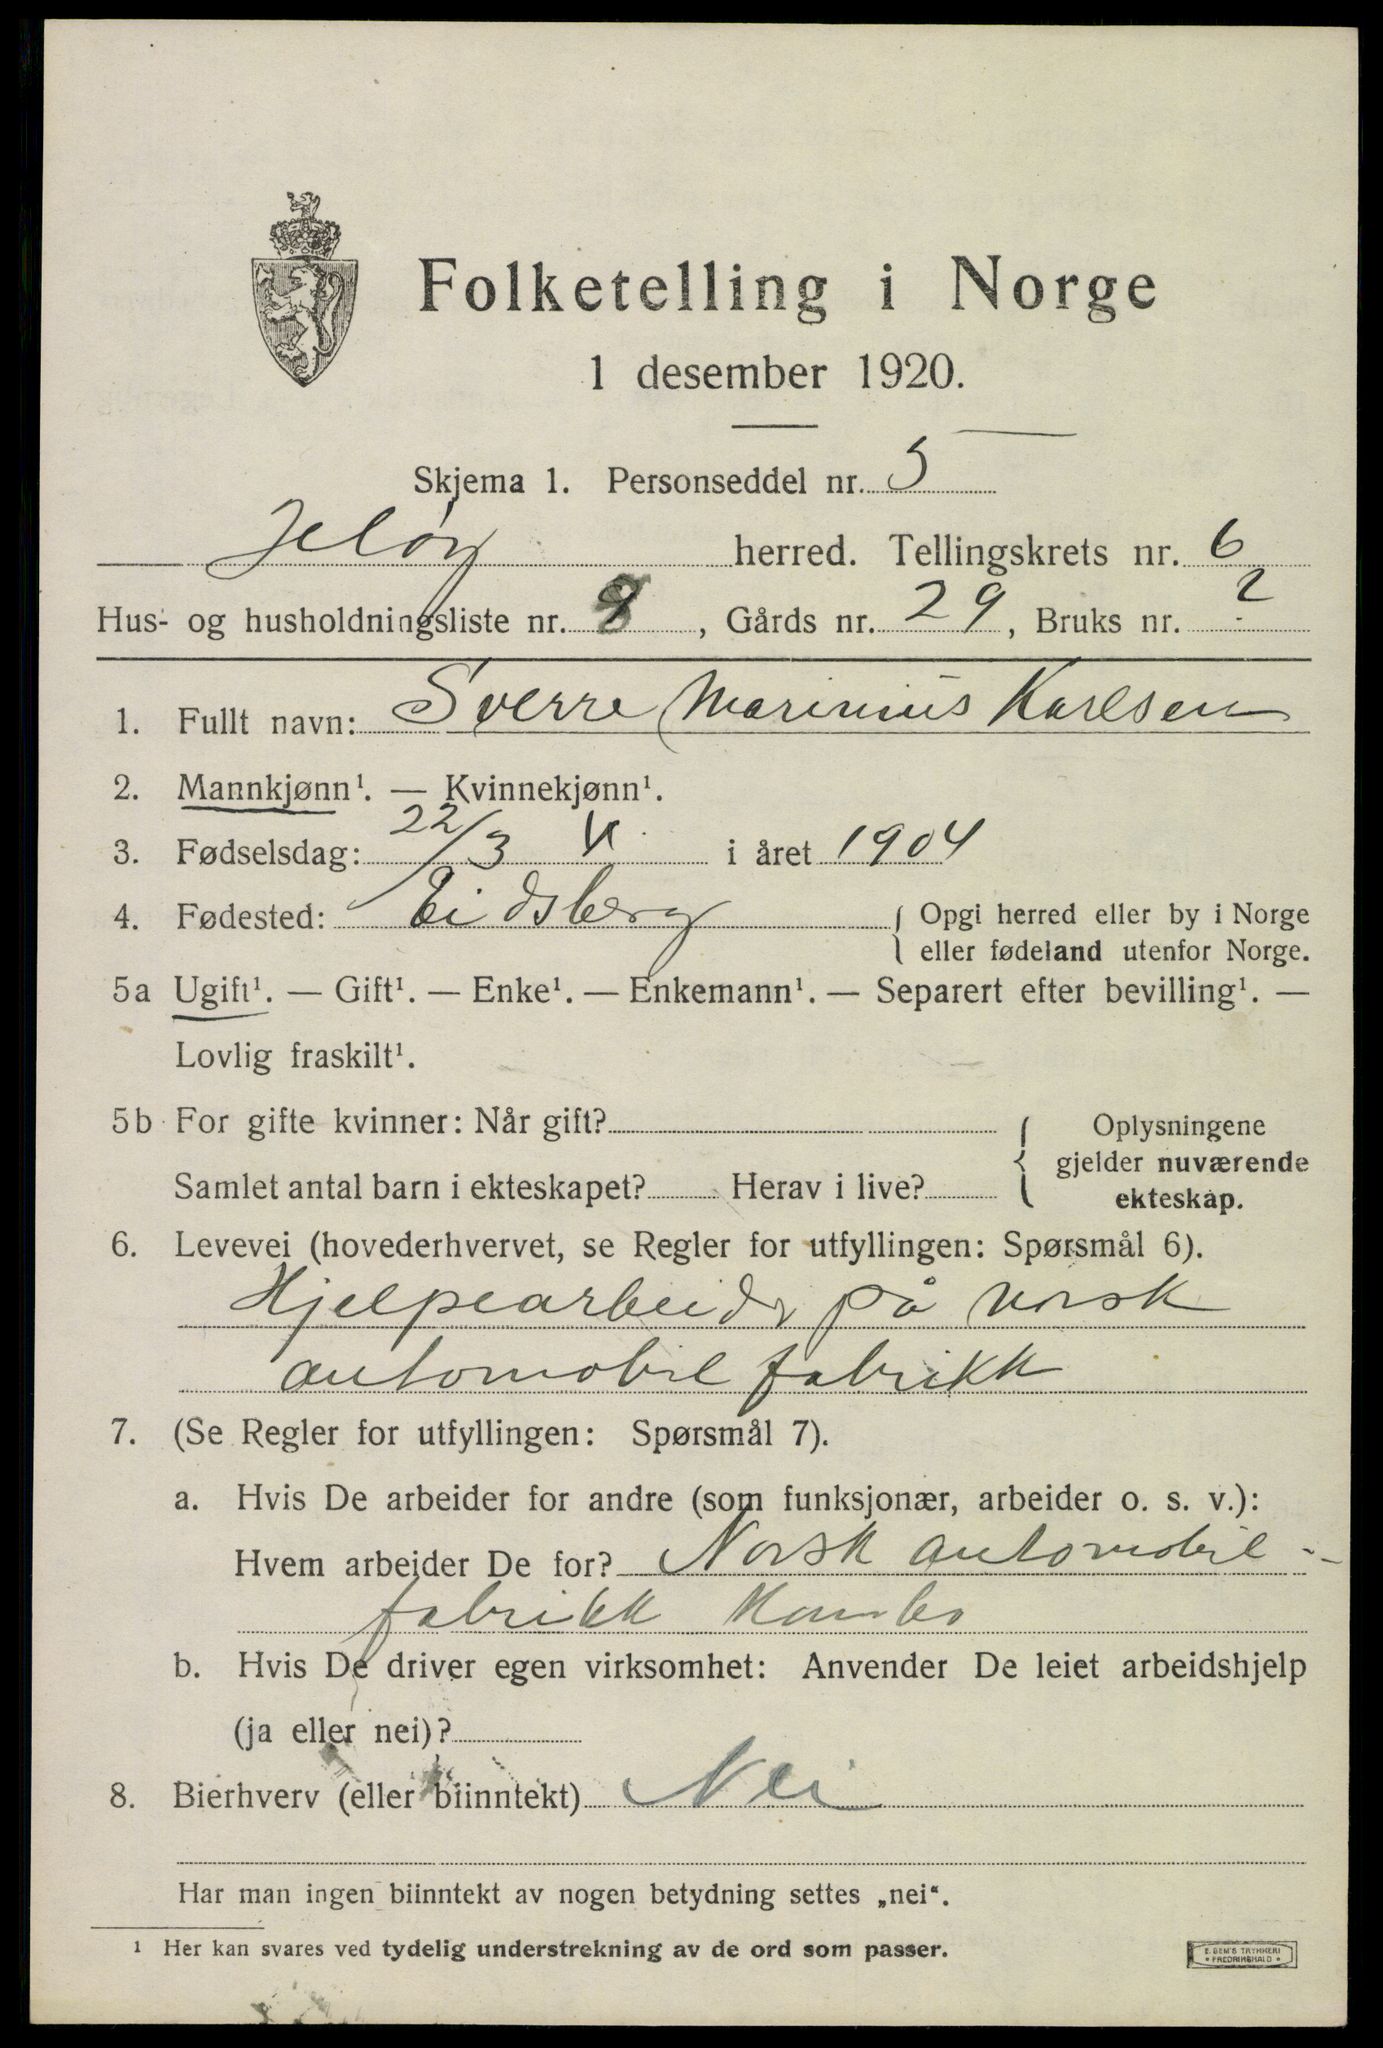 Folketelling i Norge
1 desember 1920.
Skjema 1. Personseddel nr. 5
Jeløy herred. Tellingskrets nr. 6
Hus- og husholdningsliste nr. 9, Gårds nr. 29, Bruks nr. ?
1. Fullt navn: Sverre Marinius Karlsen
2. Mannkjønn¹. — Kvinnekjønn¹.
3. Fødselsdag: 22/3 i året 1904
4. Fødested: Eidsberg { Opgi herred eller by i Norge
eller fødeland utenfor Norge.
5a Ugift¹. — Gift¹. — Enke¹. — Enkemann¹. — Separert efter bevilling¹. —
Lovlig fraskilt¹.
5b For gifte kvinner: Når gift? { Oplysningene
gjelder nuværende
Samlet antal barn i ekteskapet? Herav i live? ekteskap.
6. Levevei (hovederhvervet, se Regler for utfyllingen: Spørsmål 6).
Hjelpearbeider på norsk
automobil fabrikk
7. (Se Regler for utfyllingen: Spørsmål 7).
a. Hvis De arbeider for andre (som funksjonær, arbeider o. s. v.):
Hvem arbeider De for? Norsk automobil-
fabrikk Kambo
b. Hvis De driver egen virksomhet: Anvender De leiet arbeidshjelp
(ja eller nei)?
8. Bierhverv (eller biinntekt) Nei
Har man ingen biinntekt av nogen betydning settes „nei“.
¹ Her kan svares ved tydelig understrekning av de ord som passer.
E. SEM'S TRYKKERI
• FREDRIKSHALD •